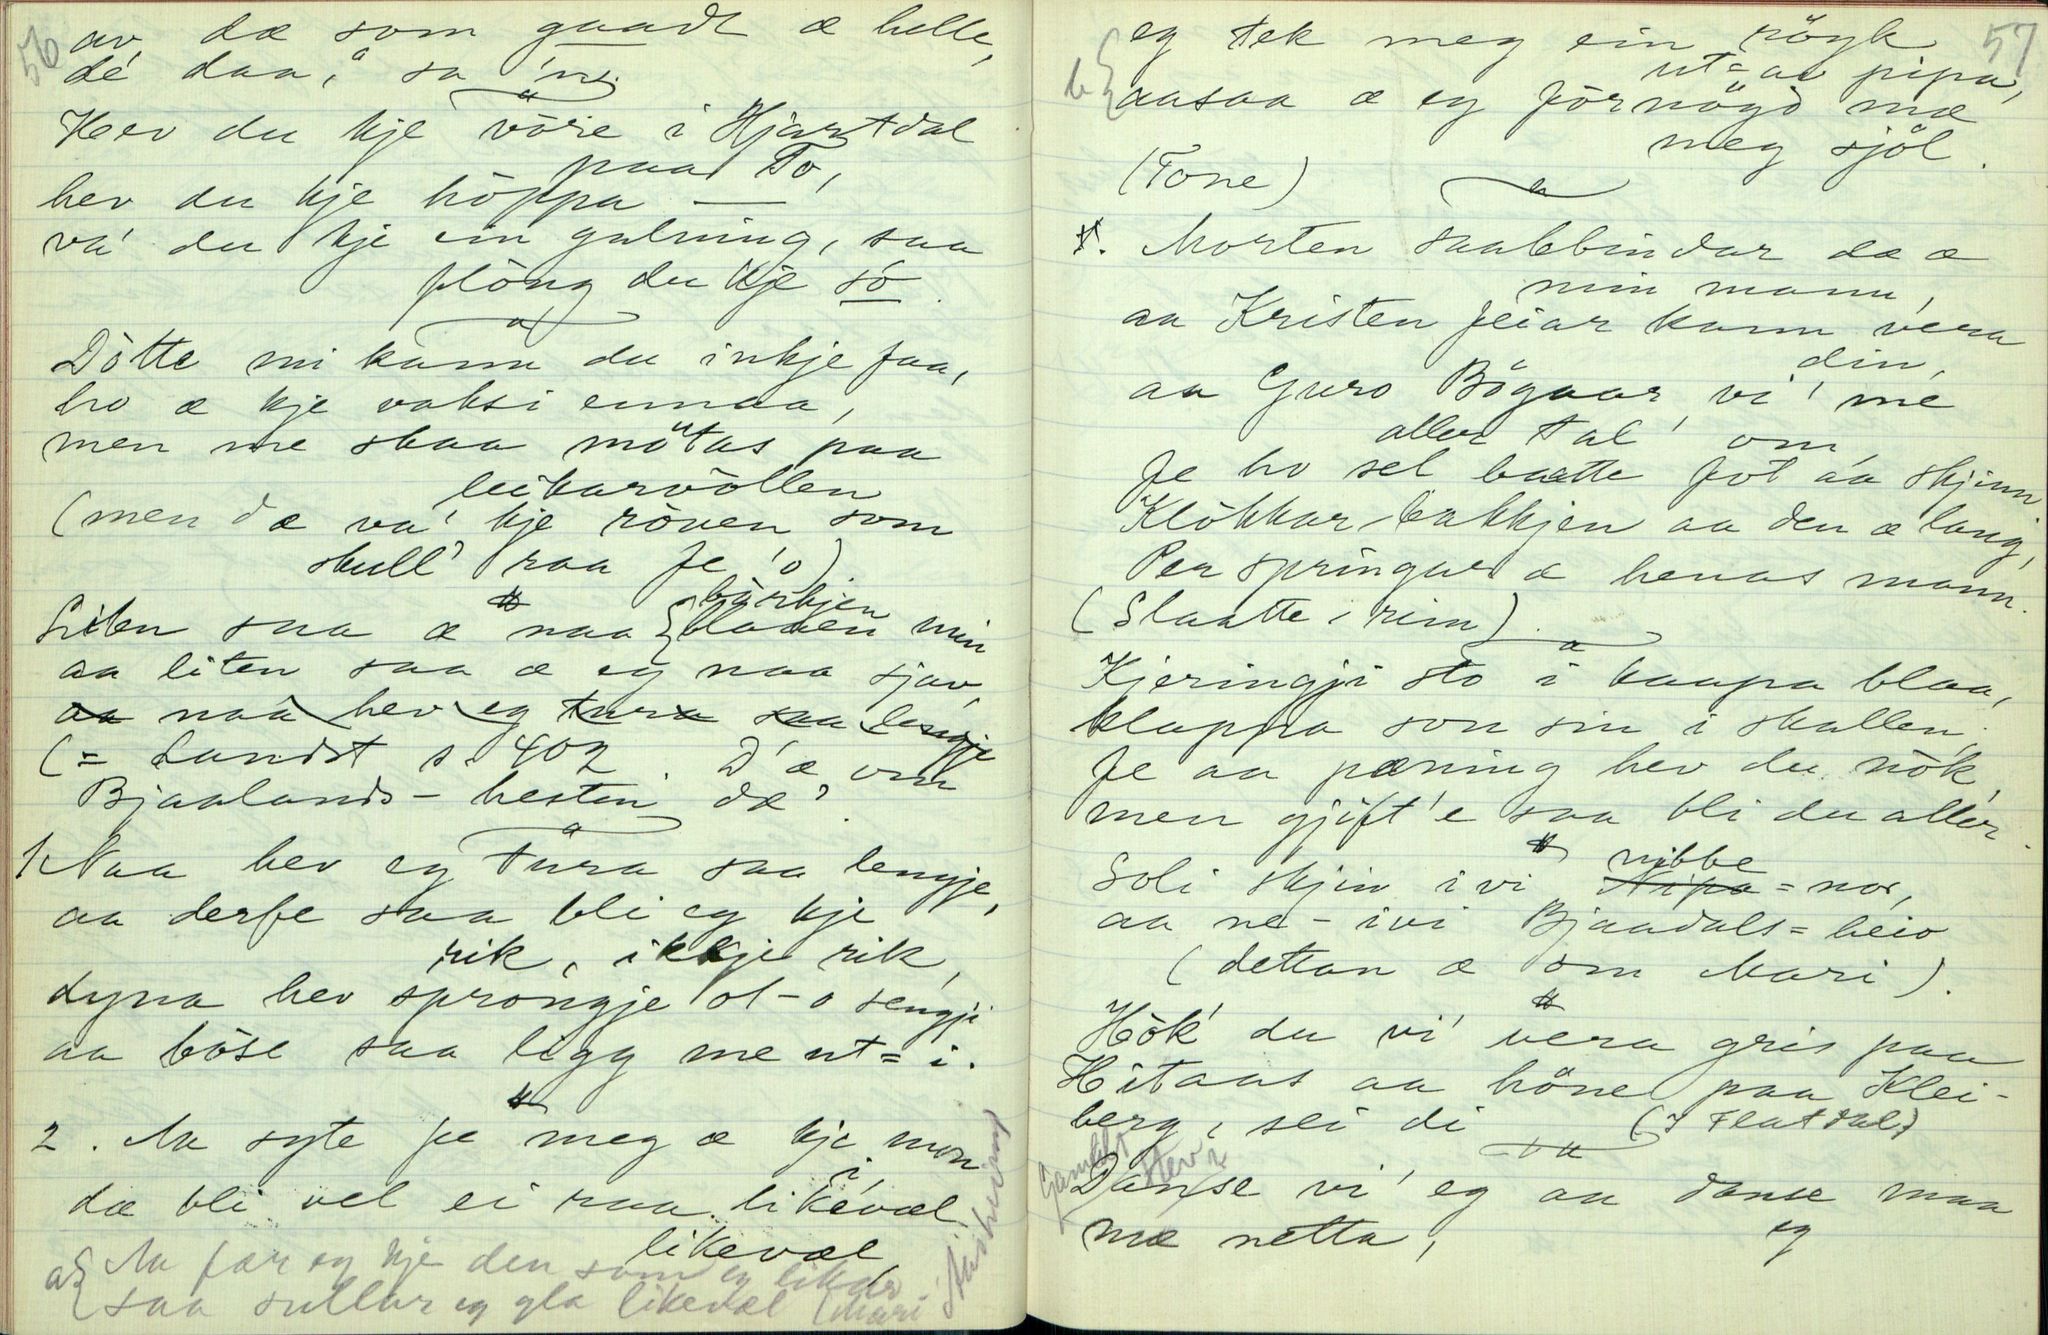 56
av, dæ som gaadt æ helle,
dé daa," sa 'n.
Hev du kje vòre i Hjartdal
paa To,
hev du kje hòppa —
va' du kje ein galning, saa
flòng du kje so.
Dòtte mi kann du inkje faa,
ho æ kje vaksi ennaa,
men me skaa mötas paa
leikarvòllen
(men dæ va' kje ròven som
skull' raa fe 'o)
Liten saa æ naa { bòrkjen
blakken min
aa liten saa æ eg naa sjav,
aa naa hev eg tura saa lengje
(= Landst s. 402. D'æ om
Bjaalands-hesten dæ.
1. Naa hev eg tura saa lengje,
aa derfe saa bli eg kje
rik, ikkje rik,
dyna hev sprongje ot-o sengji
aa bòse saa ligg me ut=i.
2. Aa syte fe meg æ kje mon
i,
dæ bli vel ei raa likevæl
likevæl,
a{ Aa fær eg kje den som eg likar
saa sullar eg gla likevæl (Mari
57
b{ eg tek meg ein röyk
ut=av pipa,
aasaa æ eg förnögd mæ
meg sjöl.
(Tone)
Morten saalbindar dæ æ
min mann,
aa Kristen feiar kann vera
din,
aa Guro Bögaar vi' me
aller tal' om
Fe ho sel baatte fot aa skjinn
Klòkkar-bakkjen aa den æ lang,
Per springar æ henas mann.
(Slaatte-rim)
Kjeringji sto i kaapa blaa,
klappa son sin i skallen.
Fe aa pæning hev du nòk,
men gjift'e saa bli du aller.
Soli skjin ivi nibbe
Nipa=nor,
aa ne-ivi Bjaadals=heio
(dettan æ om Mari).
Hòk' du vi' vera gris paa
Hitaas aa höne paa Klei-
berg, sei di (I Flatdal)
Gamalt
stev:
Danse vi' eg aa danse maa
eg
mæ netta,